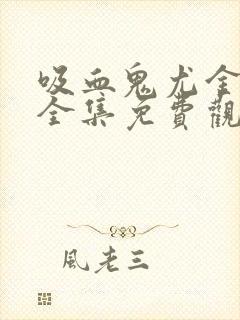 吸血鬼尤金
全集免費觀
風老三